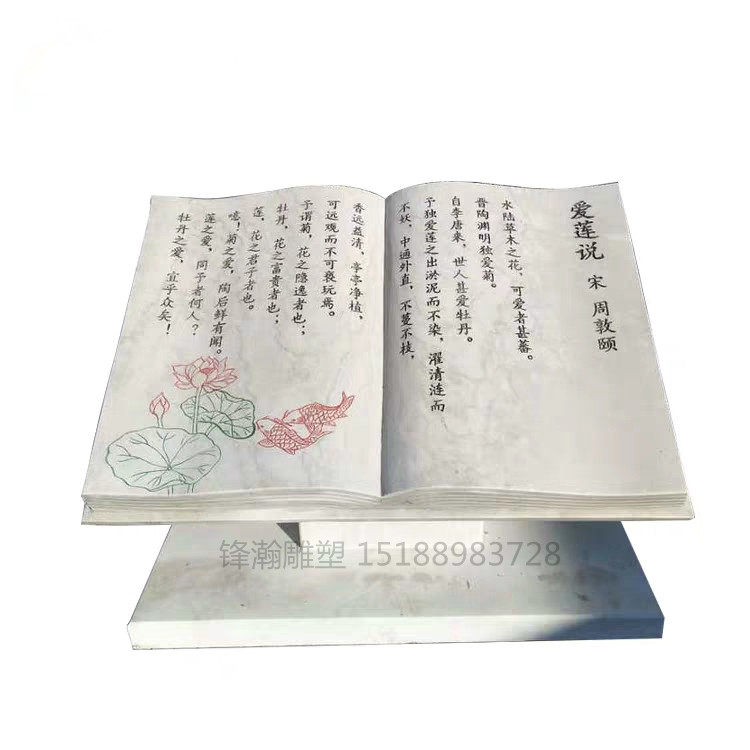 爱莲说
宋 周敦颐
水陆草木之花,可爱者甚蕃。
晋陶渊明独爱菊。
自李唐来,世人甚爱牡丹。
予独爱莲之出淤泥而不染,濯清涟而
不妖,中通外直,不蔓不枝,
香远益清,亭亭净植,
可远观而不可亵玩焉。
予谓菊,花之隐逸者也;
牡丹,花之富贵者也;
莲,花之君子者也。
噫!菊之爱,陶后鲜有闻。
莲之爱,同予者何人?
牡丹之爱,宜乎众矣!
锋瀚雕塑 15188983728